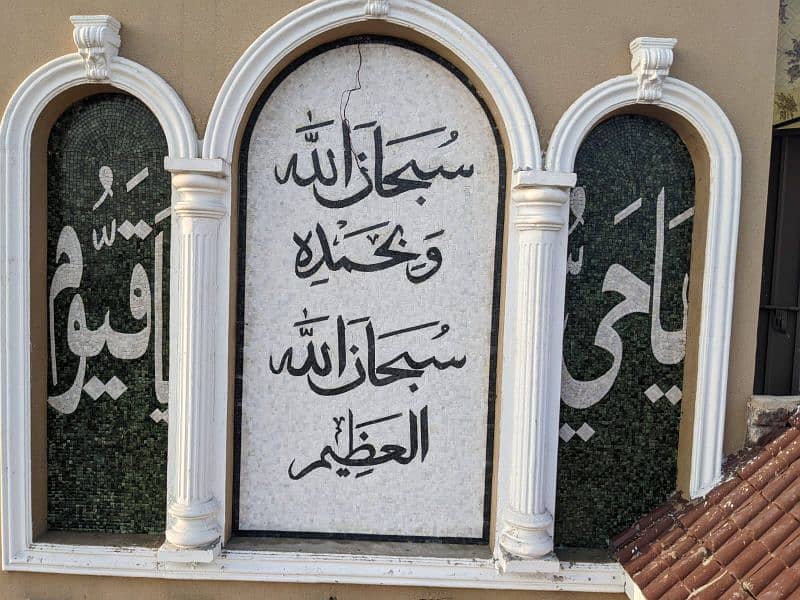 يا حي
سُبحان الله
وبحمدِه
سُبحان الله
العَظِيم
يا قيوم